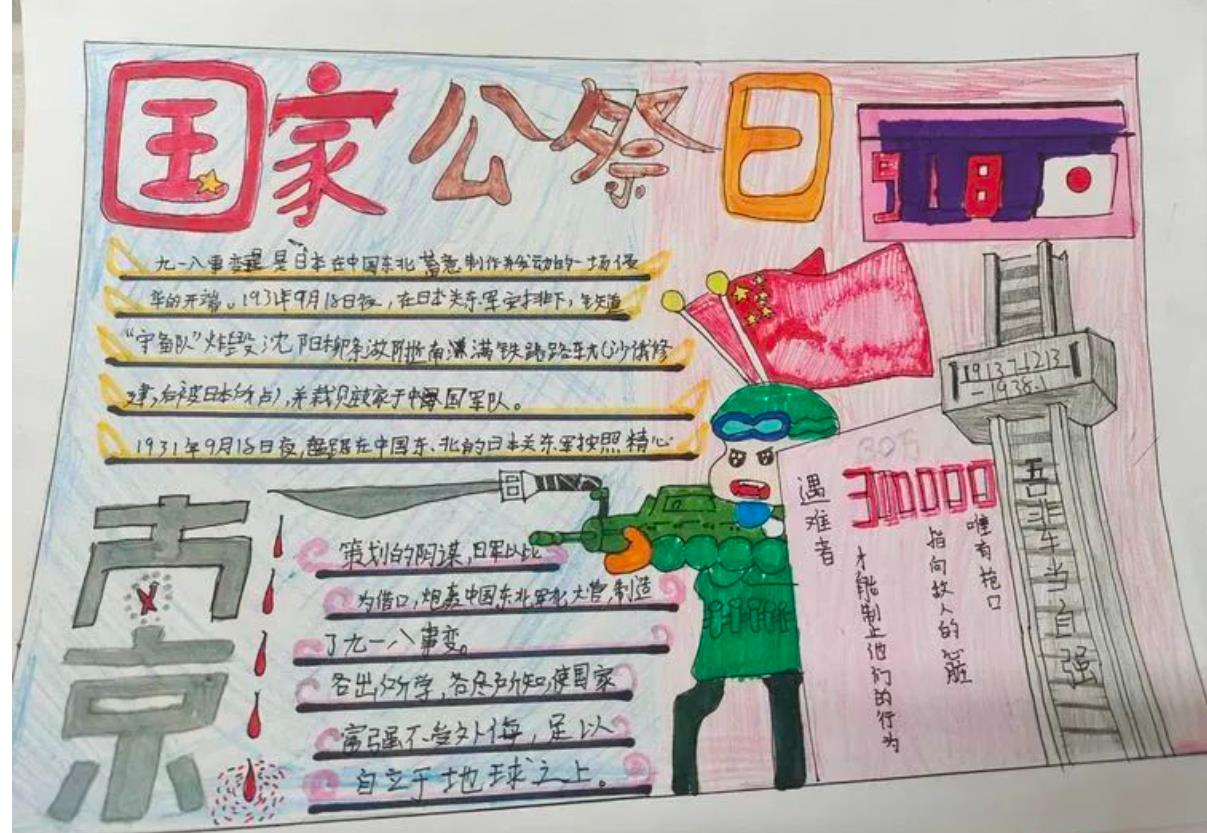 国家公祭日
918
九一八事变是日本在中国东北蓄意制作并发动的一场侵
华的开端。1931年9月18日夜，在日本关东军安排下，铁道
“守备队”炸毁沈阳柳条湖附近南满铁路路轨(沙俄修
建，后被日本所占)，并栽赃嫁祸于中国军队。
1931年9月18日夜，盘踞在中国东北的日本关东军按照精心
策划的阴谋，日军以此
为借口，炮轰中国东北军北大营，制造
了九一八事变。
各出所学，各尽所知，使国家
富强不受外侮，足以
自立于地球之上。
南京
30万
300000
遇难者
唯有枪口
指向敌人的心脏
才能制止他们的行为
1937.12.13
-1938.1
吾辈当自强